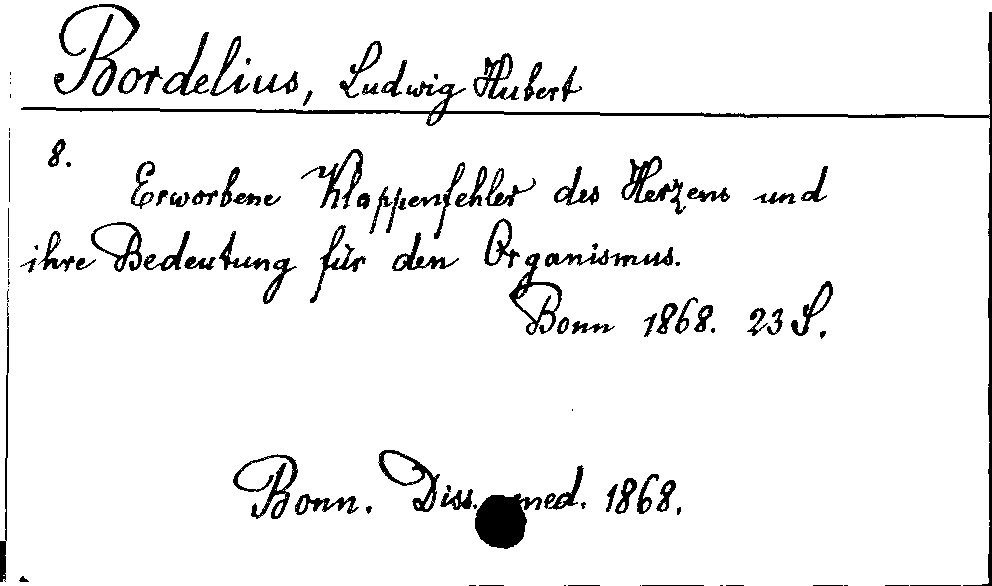 Bordelius, Ludwig Hubert
8.
Erworbene Klappenfehler des Herzens und
ihre Bedeutung für den Organismus.
Bonn 1868. 23 S.
Bonn. Diss. med. 1868.